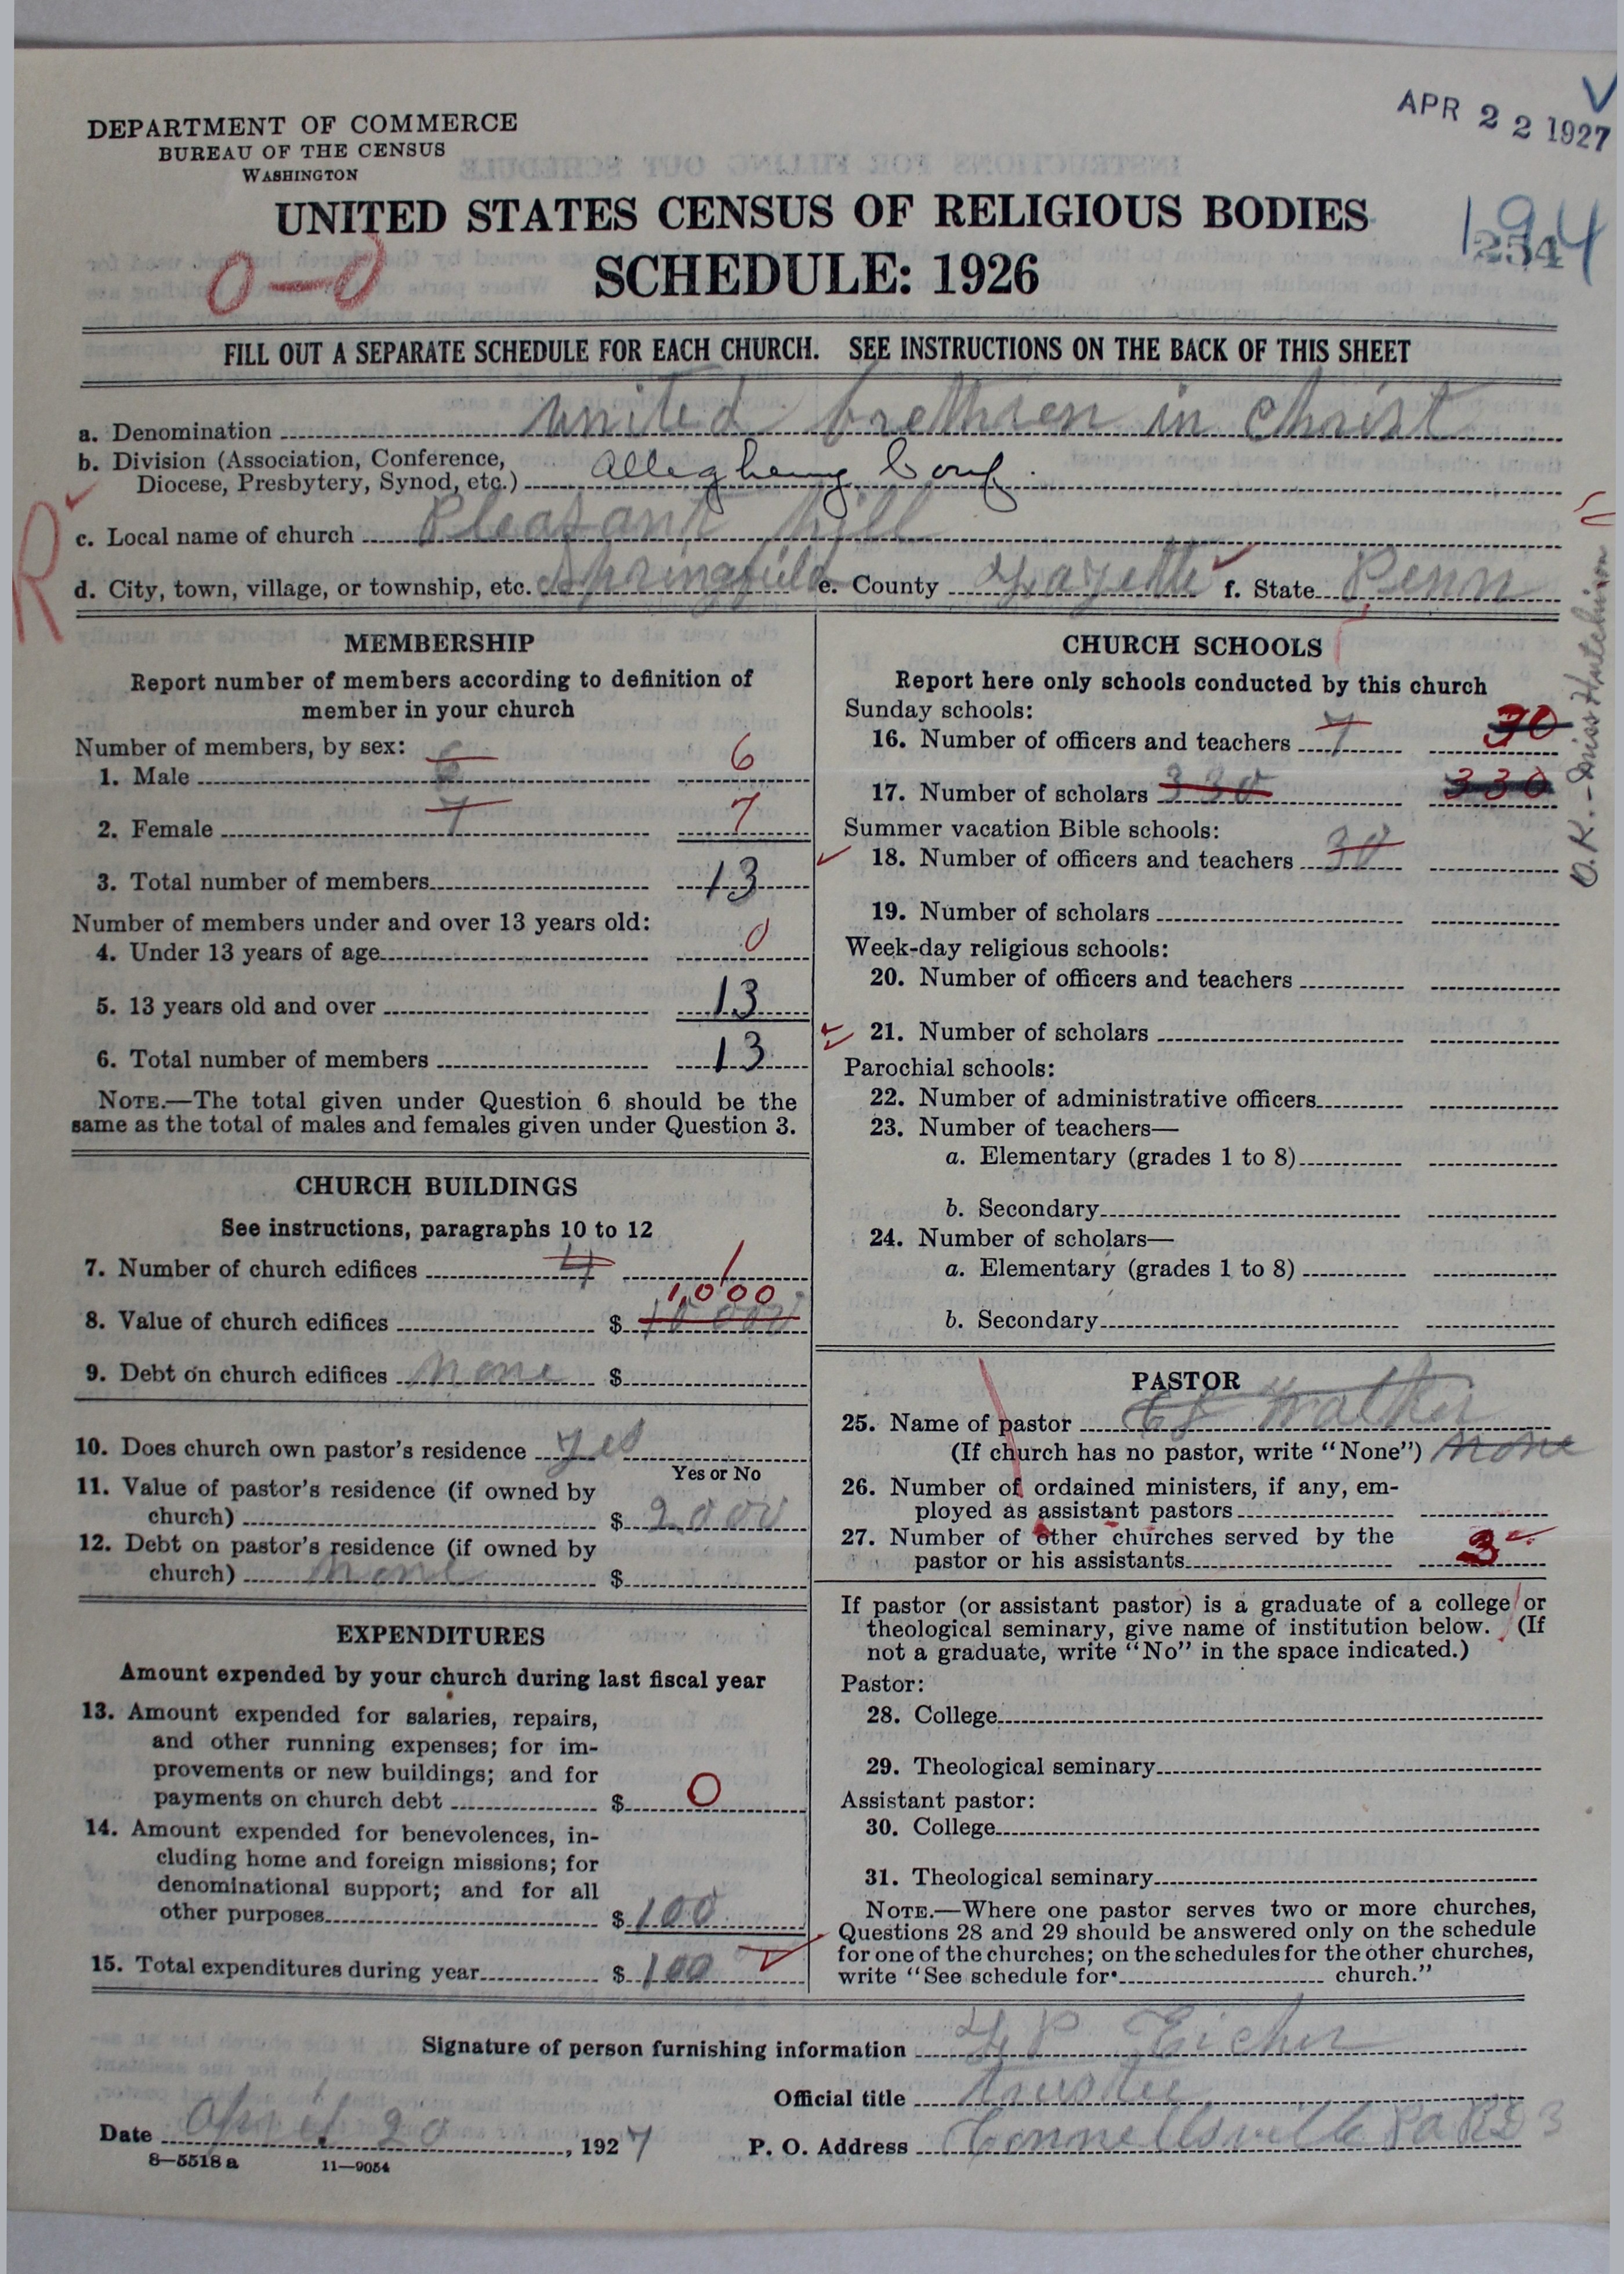 APR 22 1927
DEPARTMENT OF COMMERCE
BUREAU OF THE CENSUS
WASHINGTON
UNITED STATES CENSUS OF RELIGIOUS BODIES
SCHEDULE: 1926
194
2544
0-0
FILL OUT A SEPARATE SCHEDULE FOR EACH CHURCH. SEE INSTRUCTIONS ON THE BACK OF THIS SHEET
a. Denomination united brethren in christ
b. Division (Association, Conference,
Diocese, Presbytery, Synod, etc.) Allegheny Conf.
R
c. Local name of church Pleasant hill
d. City, town, village, or township, etc. Springfield e. County Fayette f. State Penn
O.K. - Miss Hutchinson
MEMBERSHIP
Report number of members according to definition of
member in your church
Number of members, by sex:
1. Male 6 6
2. Female 7 7
3. Total number of members 13
Number of members under and over 13 years old:
4. Under 13 years of age 0
5. 13 years old and over 13
6. Total number of members 13
NOTE.—The total given under Question 6 should be the
same as the total of males and females given under Question 3.
CHURCH BUILDINGS
See instructions, paragraphs 10 to 12
7. Number of church edifices 4 1
1,000
8. Value of church edifices $ 10 000
9. Debt on church edifices none $
10. Does church own pastor's residence yes
Yes or No
11. Value of pastor's residence (if owned by
church) $ 2000
12. Debt on pastor's residence (if owned by
church) none $
EXPENDITURES
Amount expended by your church during last fiscal year
13. Amount expended for salaries, repairs,
and other running expenses; for im-
provements or new buildings; and for
payments on church debt $ 0
14. Amount expended for benevolences, in-
cluding home and foreign missions; for
denominational support; and for all
other purposes $ 100
15. Total expenditures during year $ 100
CHURCH SCHOOLS
Report here only schools conducted by this church
Sunday schools:
16. Number of officers and teachers 7 30
17. Number of scholars 330 330
Summer vacation Bible schools:
18. Number of officers and teachers 30
19. Number of scholars
Week-day religious schools:
20. Number of officers and teachers
21. Number of scholars
Parochial schools:
22. Number of administrative officers
23. Number of teachers—
a. Elementary (grades 1 to 8)
b. Secondary
24. Number of scholars—
a. Elementary (grades 1 to 8)
b. Secondary
PASTOR
25. Name of pastor Walker
(If church has no pastor, write "None") none
26. Number of ordained ministers, if any, em-
ployed as assistant pastors
27. Number of other churches served by the
pastor or his assistants 3
If pastor (or assistant pastor) is a graduate of a college or
theological seminary, give name of institution below. (If
not a graduate, write "No" in the space indicated.)
Pastor:
28. College
29. Theological seminary
Assistant pastor:
30. College
31. Theological seminary
NOTE.—Where one pastor serves two or more churches,
Questions 28 and 29 should be answered only on the schedule
for one of the churches; on the schedules for the other churches,
write "See schedule for church."
Signature of person furnishing information F P Eicher
Official title trustee
Date April 20, 1927 P. O. Address Connellsville Pa RD 3
8—5518 a 11—9054